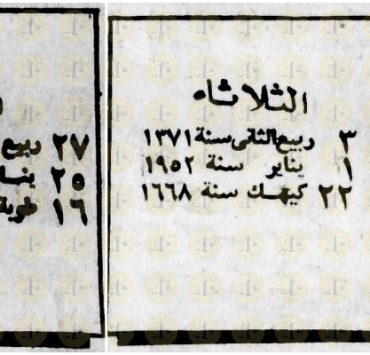 الثلاثاء
٣ ربيع الثانى سنة ١٣٧١
١ يناير سنة ١٩٥٢
٢٢ كيهك سنة ١٦٦٨
٢٧ ربيع
٢٥
١٦ طوبة